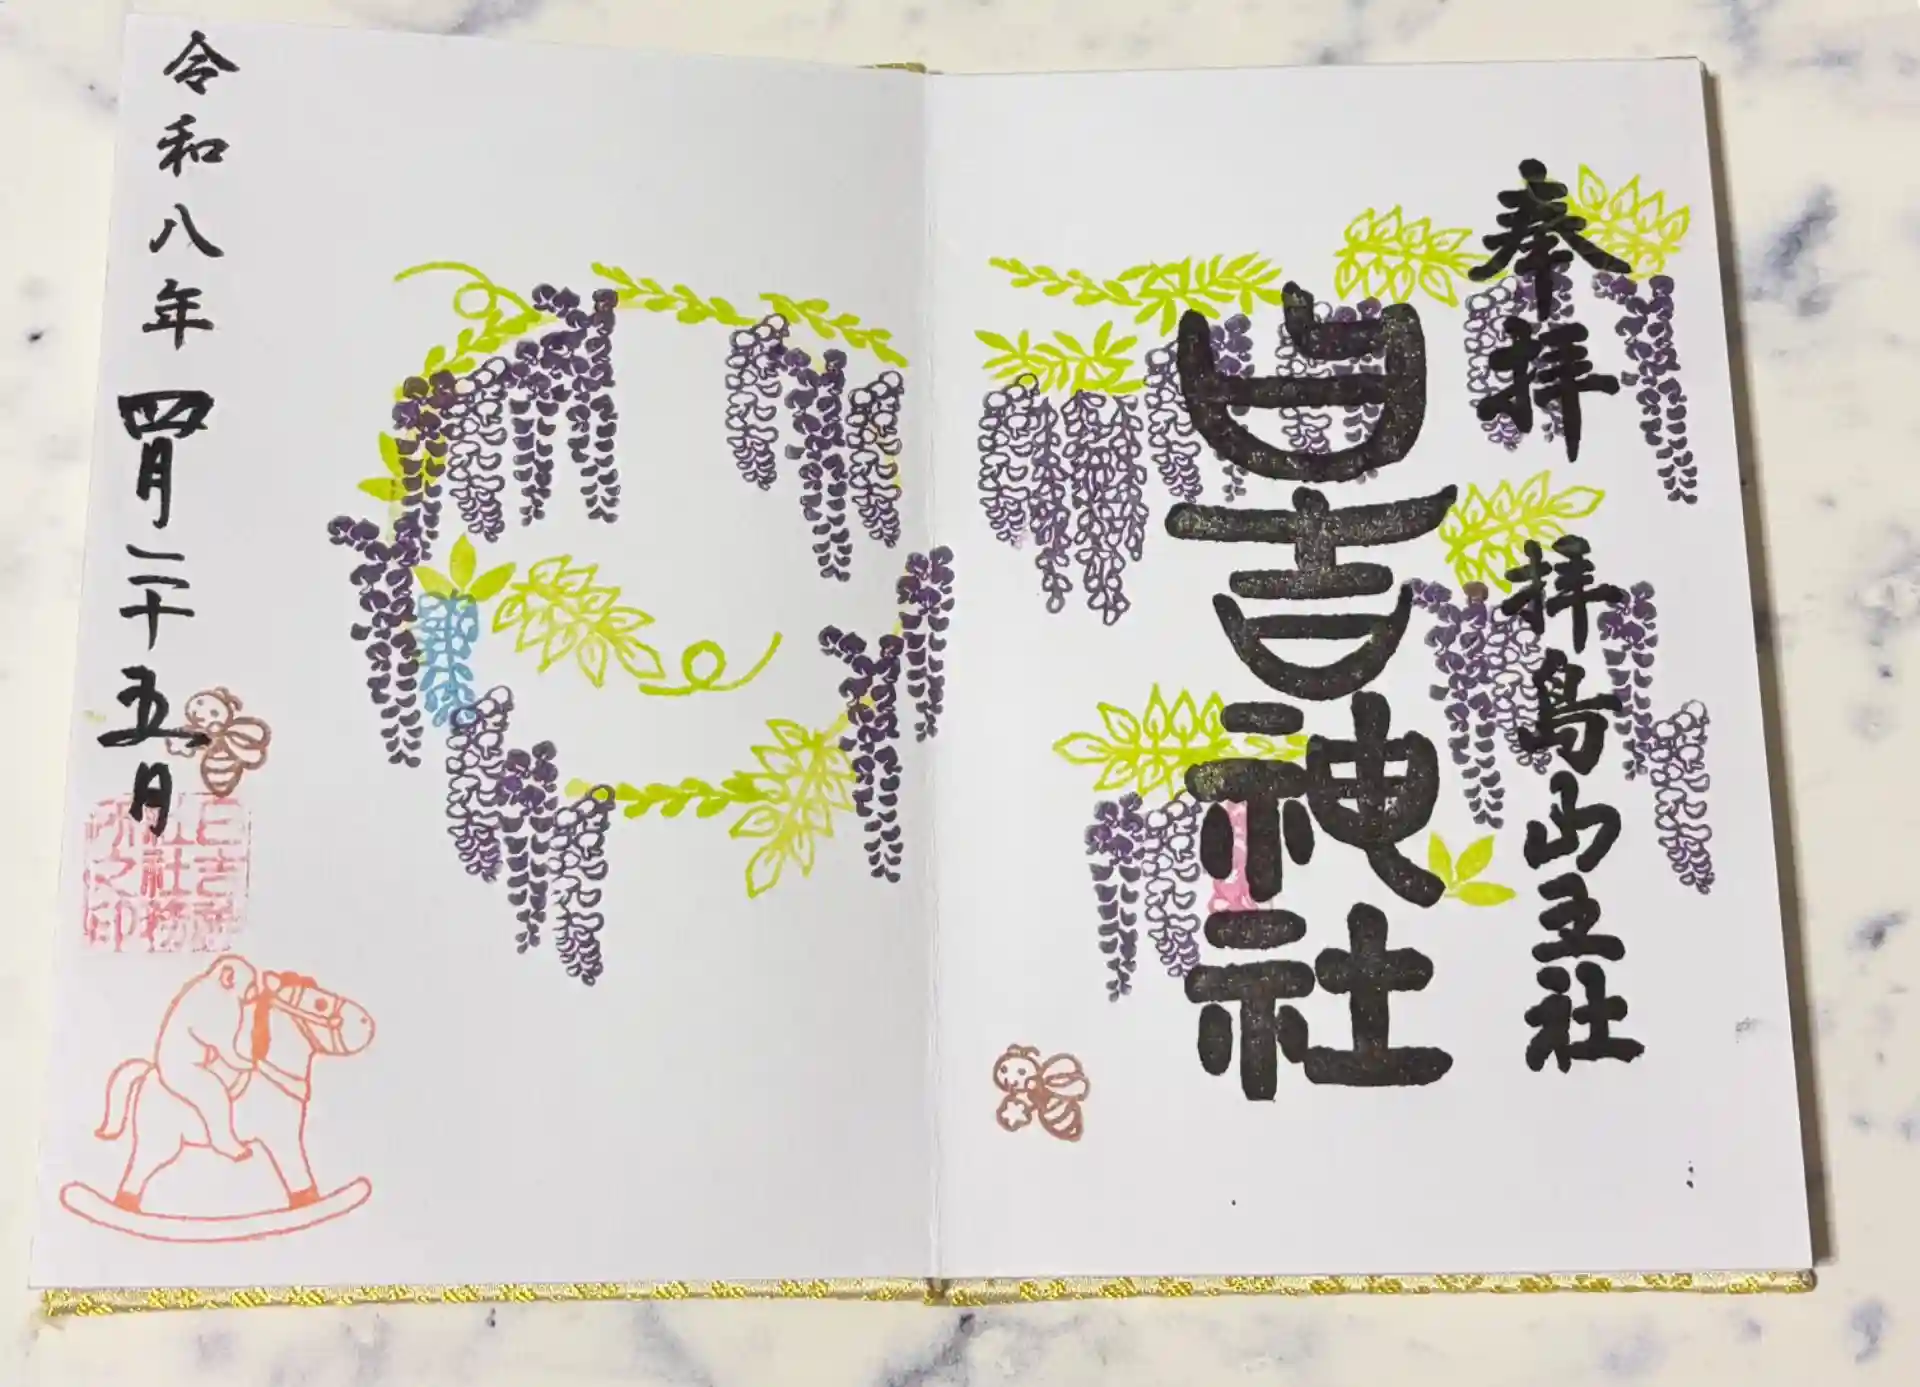 奉拝
拝島山王社
日吉神社
令和八年四月二十五日
日吉神
社社務
所之印